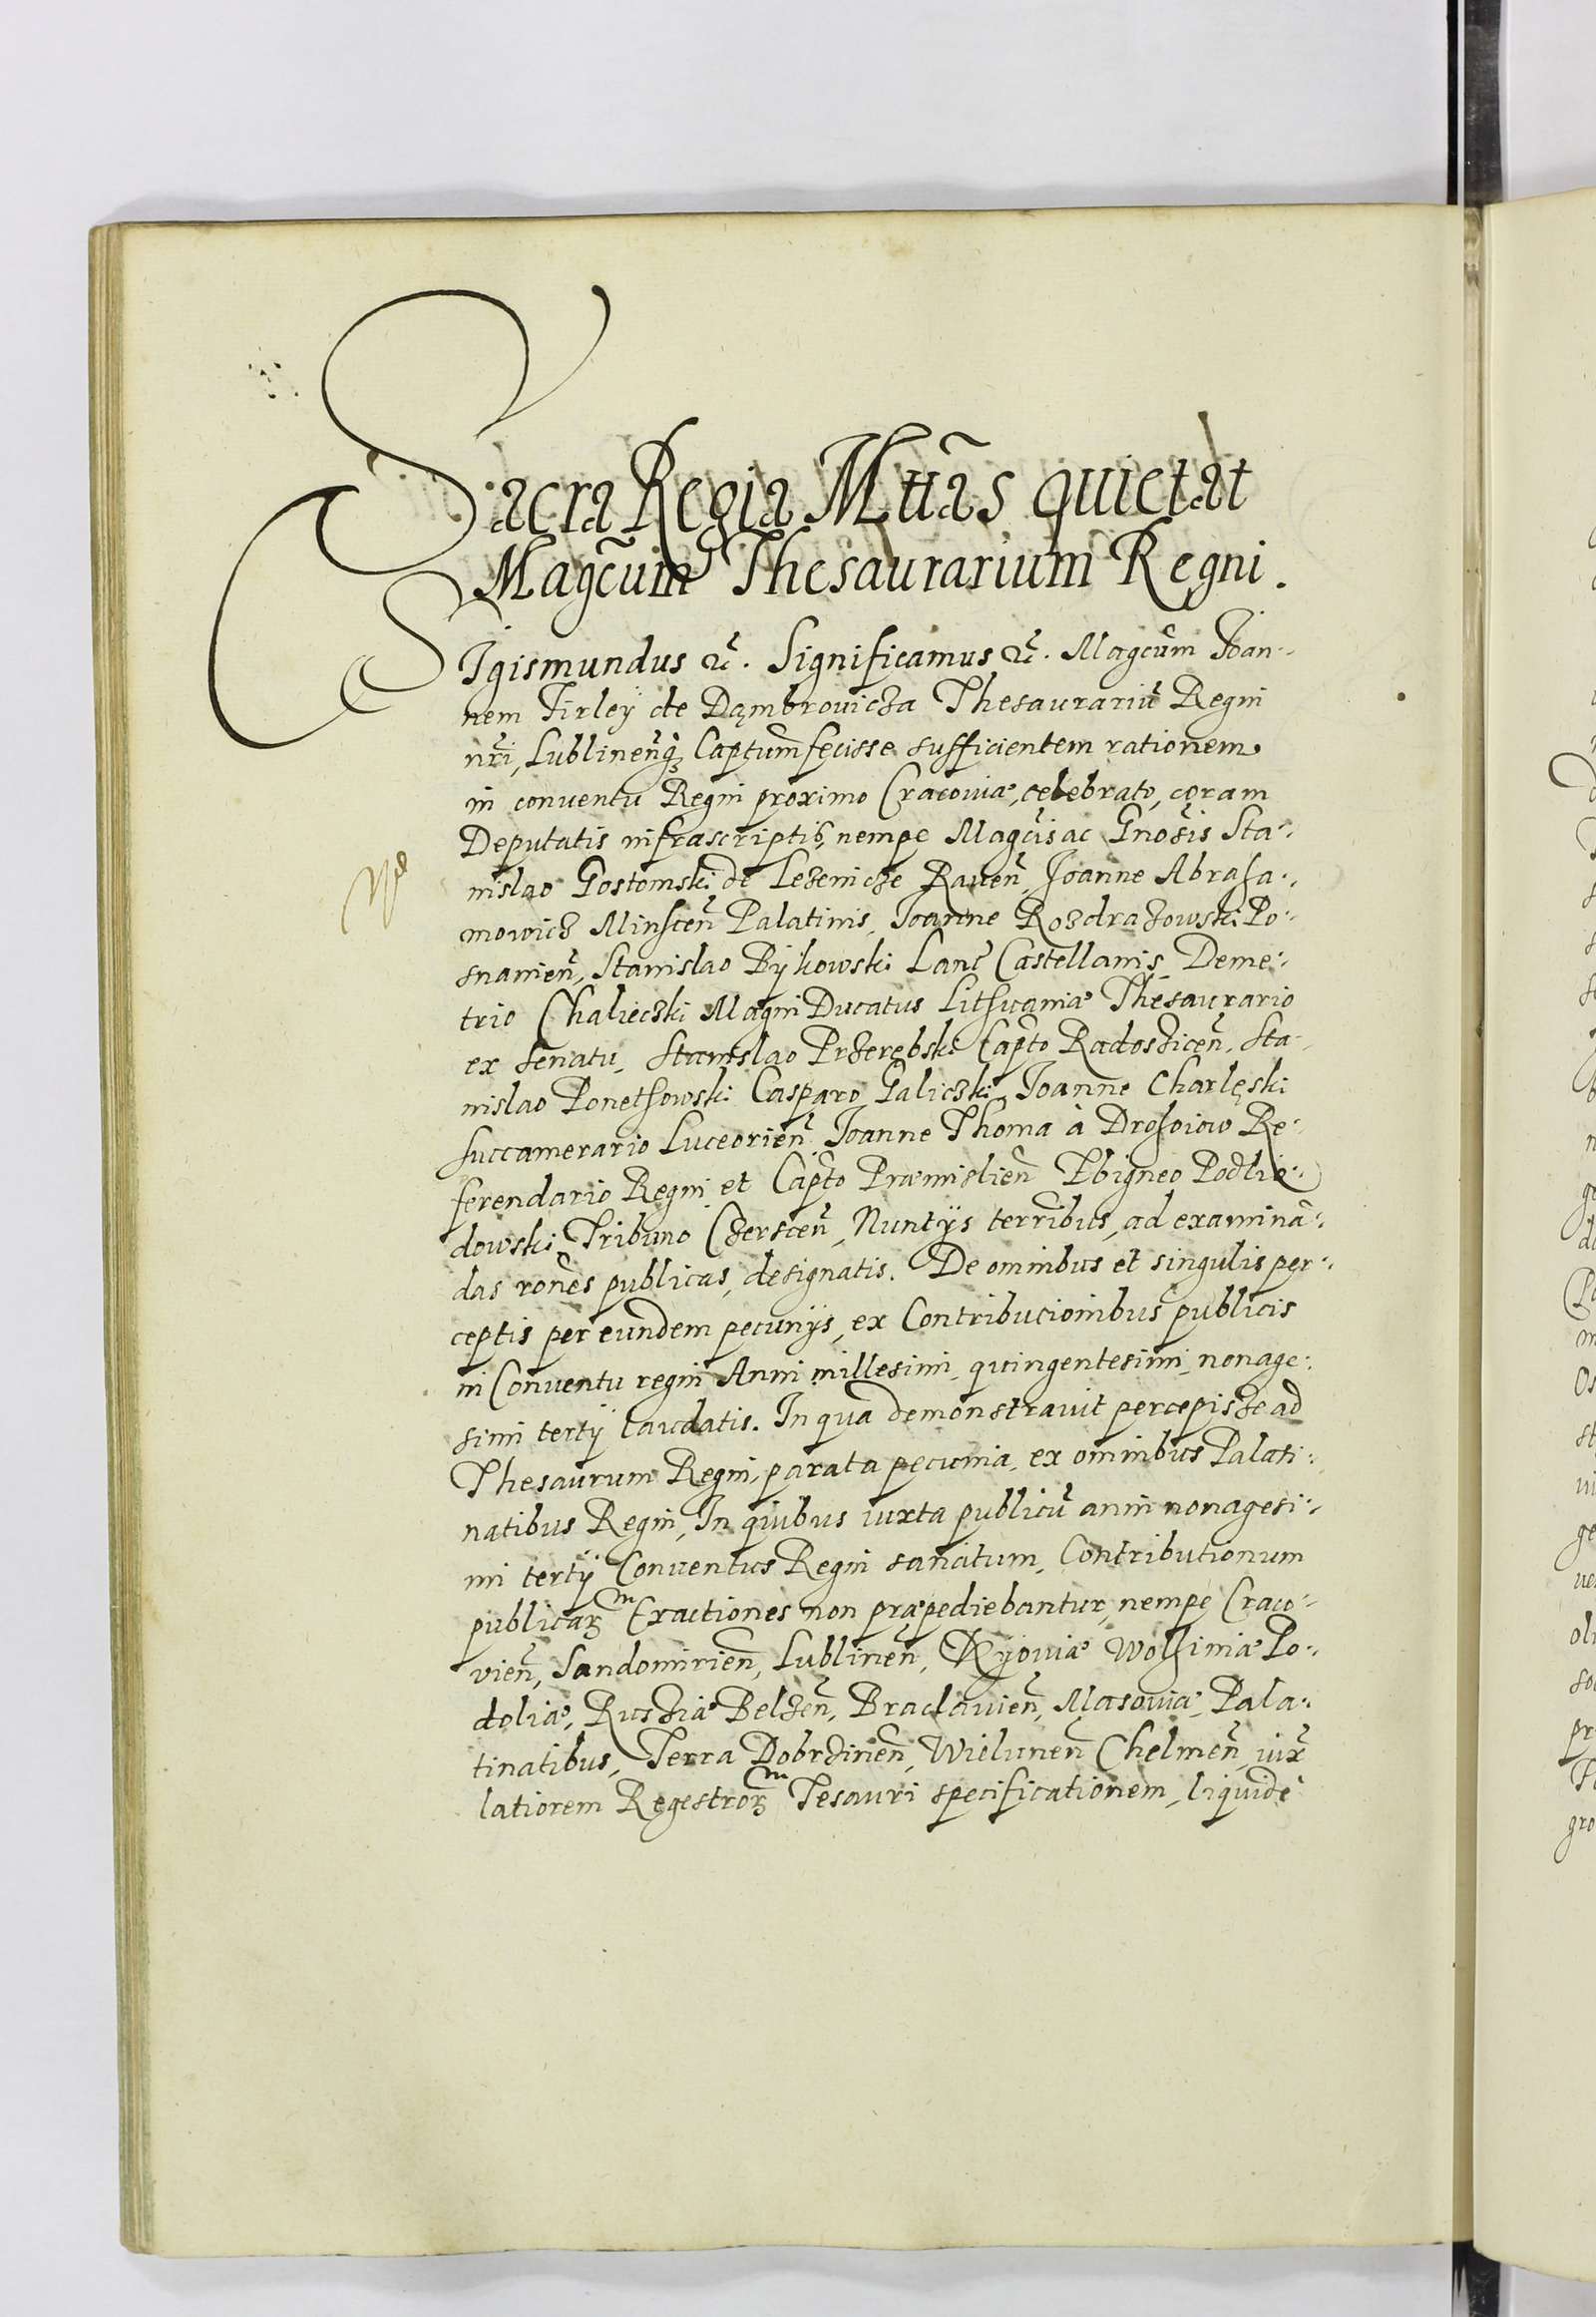 Sacra Regia Mttãs quietat
Magcũm Thesaurarium Regni.
SIgismundus &c̃. Significamus &c̃. Magcũm Joan-
nem Firleÿ de Dąmbrovicza Thesaurariũ Regni
nr̃i, Lublineñq₃ Captum̃ fecisse sufficientem rationem
in conventu Regni proximo Cracoviæ, celebrato, coram
Deputatis infrascriptis, nempe Magc̃is ac Gnosis̃ Sta-
nislao Gostomski de Lezenicze Raveñ, Joanne Abraha-
mowicz Minsceñ Palatinis, Joanne Rozdrazowski Po-
snanieñ, Stanislao Bÿkowski Lanc̃ Castellanis, Deme-
trio Chalieczki Magni Ducatus Lithuaniæ Thesaurario
ex senatu, Stanislao Przerębski Cap̃to Radosziceñ, Sta-
nislao Ponethowski Casparo Galiczki, Joanne Charlęski
succamerario Luceorieñ, Joanne Thoma à Drohoiow Re-
ferendario Regni et Cap̃to Præmislieñ Zbigneo Podlio-
dowski Tribuno Czersceñ, Nuntÿs terrĩbus, ad examinã-
das rones̃ publicas, designatis. De omnibus et singulis per-
ceptis per eundem pecunÿs, ex Contribucionibus publicis
in Conventu regni Anni millesimi, quingentesimi, nonage-
simi tertÿ laudatis. In qua demonstravit percepisze ad
Thesaurum Regni, parata pecunia, ex omnibus Palati-
natibus Regni, In quibus iuxta publicũ anni nonagesi-
mi tertÿ Conventus Regni sancitum, Contributionum
publicarꝫ m Exactiones non præpediebantur, nempe Craco-
vieñ, Sandomirieñ, Lublineñ, Kÿoviæ Wolhiniæ Po-
doliæ, Rusziæ Belzeñ, Braclavieñ, Masoviæ, Pala-
tinatibus, Terra Dobrzineñ, Wieluneñ Chelmeñ, iux̃
latiorem Regestrorꝫ m Tesauri specificationem, liquidè